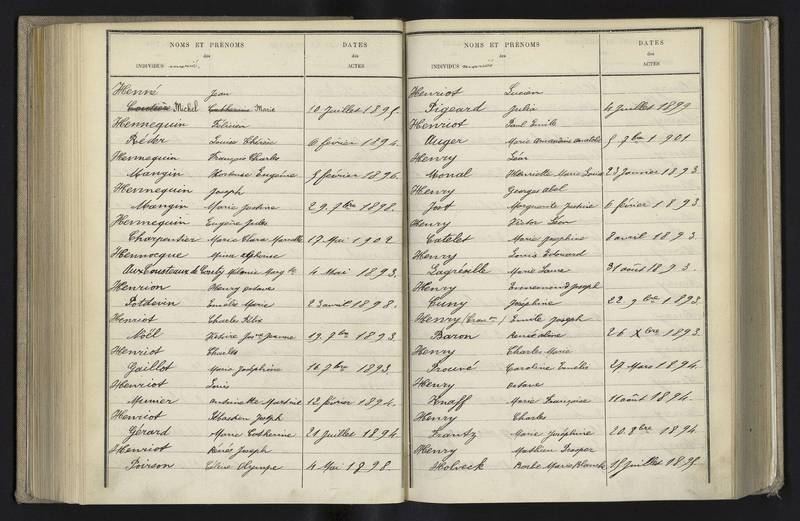 NOMS ET PRÉNOMS DATES
des des
INDIVIDUS mariés. ACTES
Henné Jean
Michel Catherine Marie 10 Juillet 1895.
Hennequin Félicien
Réder Louise Thérèse 6 février 1894.
Hennequin François Charles
Mangin Hortense Eugénie 5 février 1896.
Hennequin Joseph
Mangin Marie Justine 29. 7bre 1898.
Hennequin Eugène Jules
Charpentier Marie Clara Marcelle 17 Mai 1902
Hennocque Mina Alphonse
Aux Cousteaux de Conty Mélanie Marg te 4 Mai 1893.
Henrion Henry octave
Poldevin Emélie Marie 23 avril 1898.
Henriot Charles Félix
Noël Jeanne 19. 7bre 1893.
Henriot Charles
Gaillot Marie Joséphine 16 7bre 1893.
Henriot Louis
Munier Antoinette Martine 12 février 1894.
Henriot Sébastien Joseph
Gérard Marie Catherine 21 Juillet 1894.
Henriot René Joseph
Poirson Céline Olympe 4 Mai 1898.
NOMS ET PRÉNOMS DATES
des des
INDIVIDUS mariés ACTES
Henriot Lucien
Pigeard Julia 4 Juillet 1899
Henriot Paul Emile
Auger Marie Amandine 5 7bre 1901
Henry Léon
Monal Henriette Marie Louise 23 Janvier 1893.
Henry Georges Abel
Jost Marguerite Justine 6 février 1893
Henry Victor Léon
Catelet Marie Joséphine 8 avril 1893.
Henry Louis Edouard
Lagréselle Marie Laure 31 août 1893.
Henry Ennemond Joseph
Cuny Joséphine 22. 9bre 1893
Henry Emile Joseph
Baron 26 Xbre 1893.
Henry Charles Marie
Prouvé Caroline Emélie 27 Mars 1894.
Henry octave
Knaff Marie Françoise 11 août 1894.
Henry Charles
Frantz Marie Joséphine 20. 8bre 1894
Henry Mathieu Prosper
Holveck Barbe Marie Blanche 15 Juillet 1895.